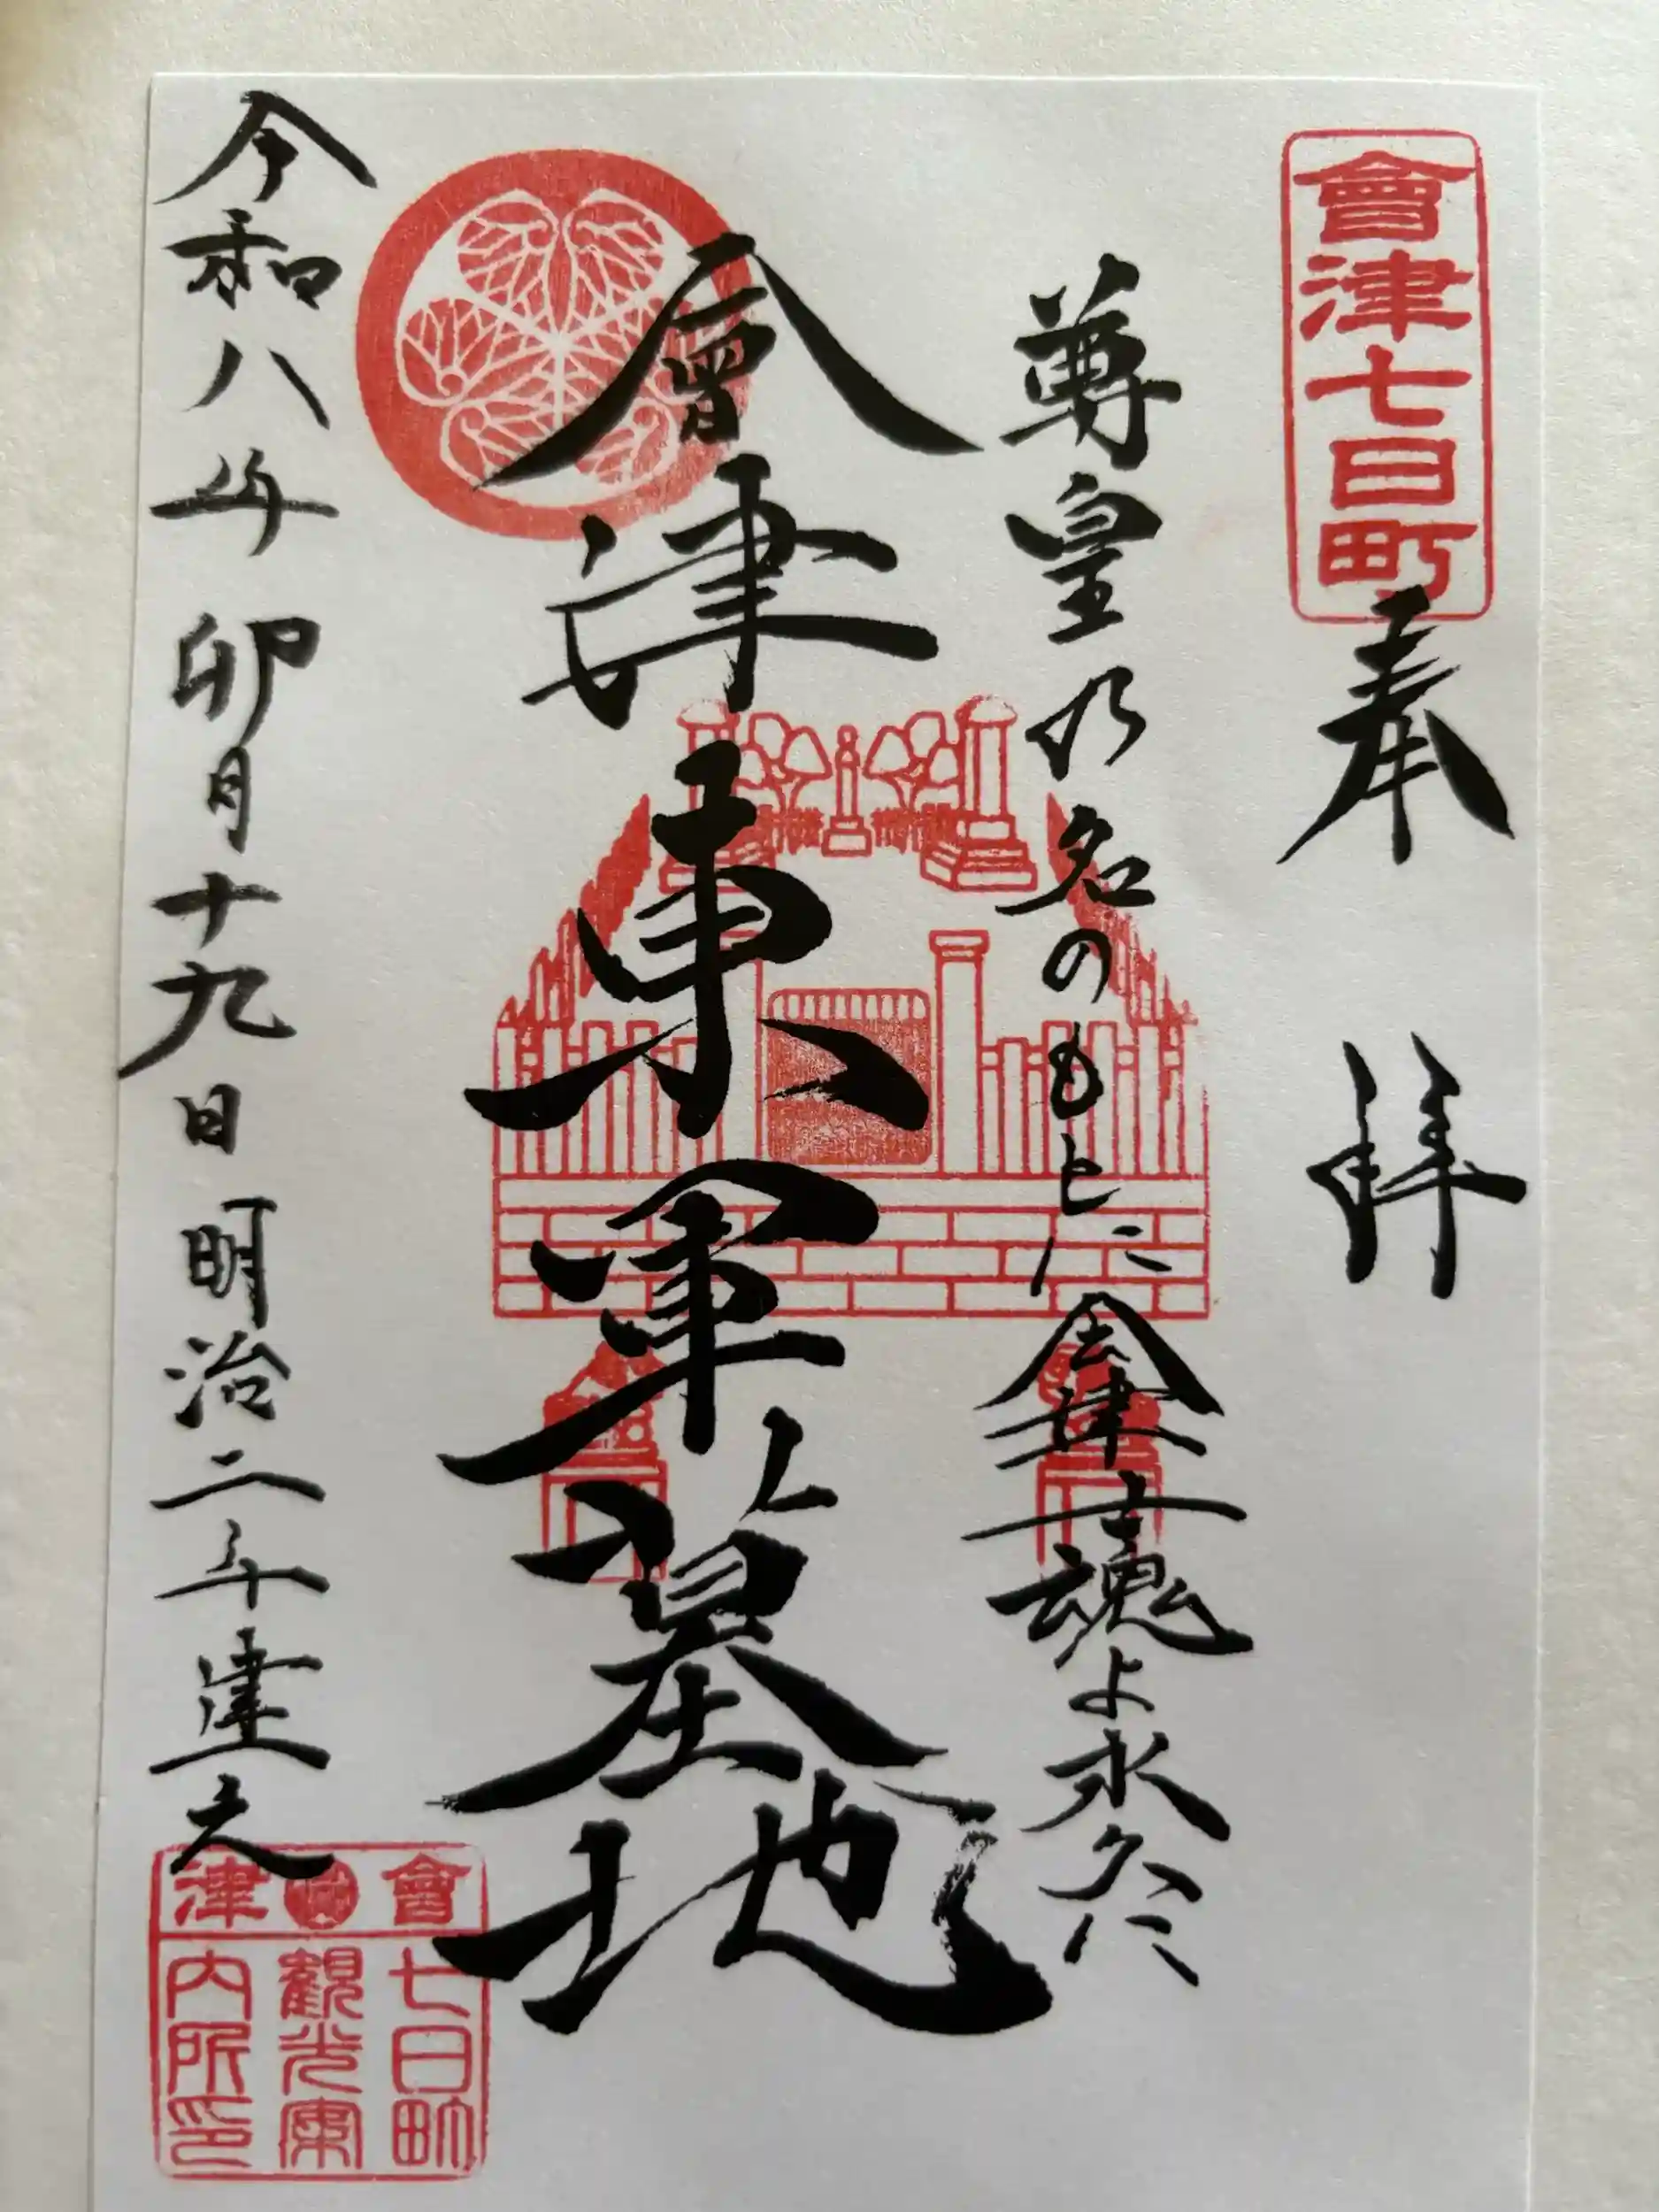 會津七日町
奉拝
尊皇乃名のもとに会津士魂よ永久に
會津東軍墓地
令和八年卯月十九日明治二年建之
會津
七日町
観光案
内所印